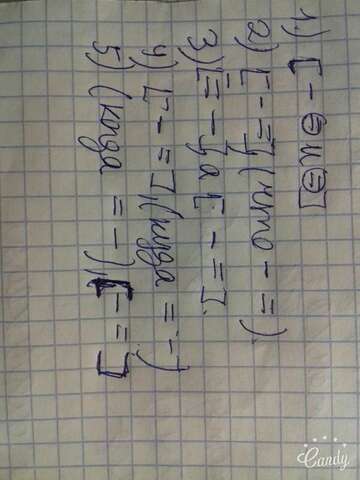 1.) [ - ⊖ и ⊖ ]
2) [ - = ], (что - =).
3) [ = - ], а [ - = ].
4) [ - = ], (куда = -)
5) (когда = -), [ - = ]
Candy